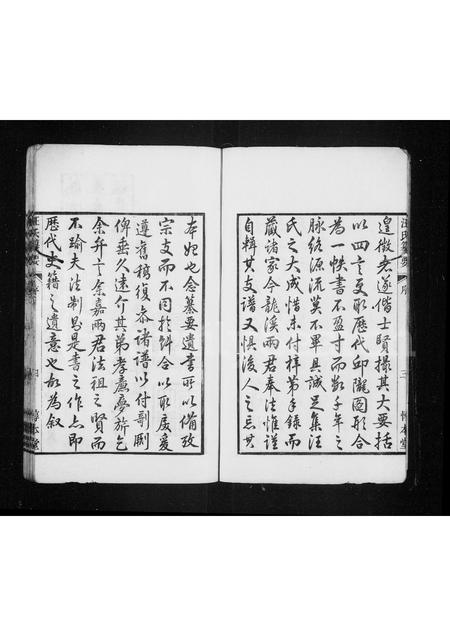 遑徵君遂偕士賢撮其大要括
以四言更取歷代邱隴圖形合
為一帙書不盈寸而數千年之
脉絡源流莫不畢具誠足集汪
氏之大成惜未付梓第手錄而
藏諸家今龍溪兩君奉法惟謹
自輯其支譜又惧後人之忘其
本始也念纂要遺書可以備攷
宗支而不同於餅合以取虔爰
遵舊稿復泰諸譜以付剞劂
俾垂久遠介其弟孝應夢旂乞
余弁言余嘉兩君法祖之賢而
不踰夫法制則是書之作亦即
歷代史籍之遺意也故為叙
汪氏纂要 序 三 惇本堂